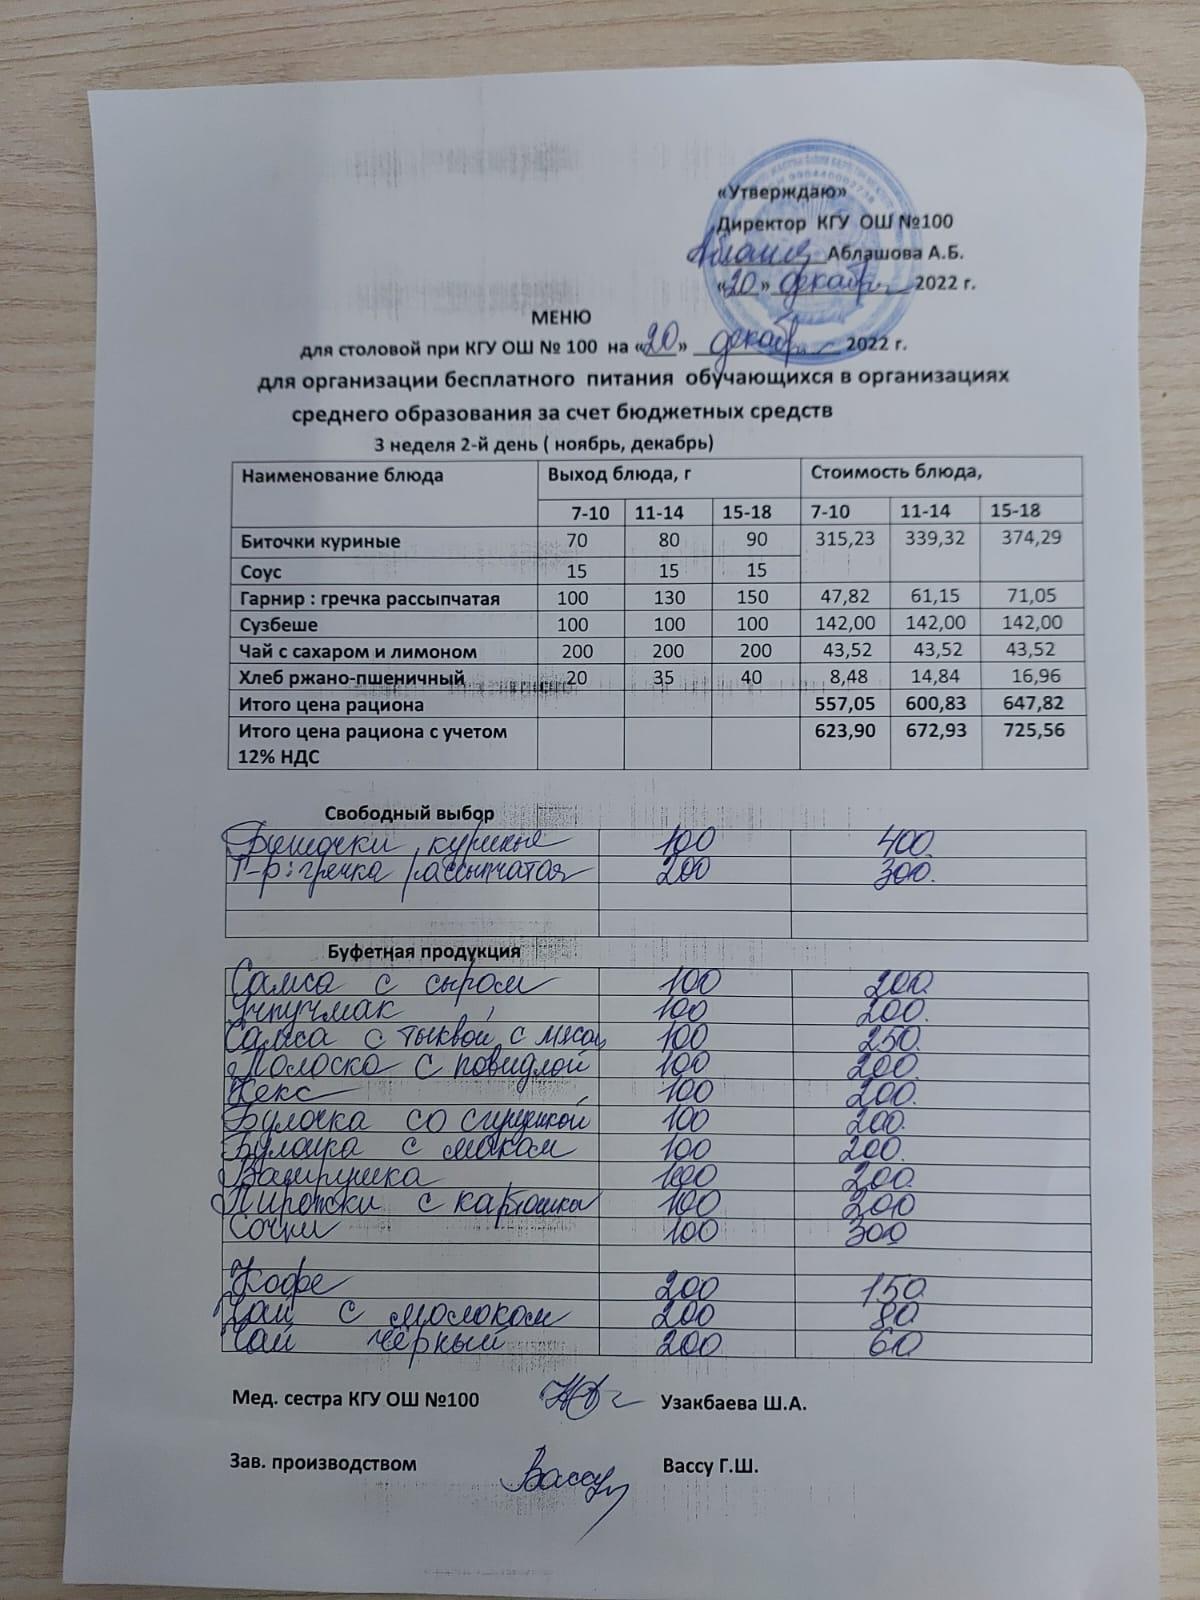 «Утверждаю»
Директор КГУ ОШ №100
Аблашова А.Б.
«20» декабрь 2022 г.
МЕНЮ
для столовой при КГУ ОШ № 100 на «20» декабрь 2022 г.
для организации бесплатного питания обучающихся в организациях
среднего образования за счет бюджетных средств
3 неделя 2-й день ( ноябрь, декабрь)
Наименование блюда Выход блюда, г Стоимость блюда,
7-10 11-14 15-18 7-10 11-14 15-18
Биточки куриные 70 80 90 315,23 339,32 374,29
Соус 15 15 15
Гарнир : гречка рассыпчатая 100 130 150 47,82 61,15 71,05
Сузбеше 100 100 100 142,00 142,00 142,00
Чай с сахаром и лимоном 200 200 200 43,52 43,52 43,52
Хлеб ржано-пшеничный 20 35 40 8,48 14,84 16,96
Итого цена рациона 557,05 600,83 647,82
Итого цена рациона с учетом 623,90 672,93 725,56
12% НДС
Свободный выбор
Биточки куриные 100 400
Г-р: гречка рассыпчатая 200 300.
Буфетная продукция
Самса с сыром 100 200
Учпучмак 100 200.
Самса с тыквой, с мясом 100 250.
Полоска с повидлой 100 200
Кекс 100 200.
Булочка со сгущенкой 100 200.
Булочка с маком 100 200.
Ватрушка 100 200
Пирожки с картошкой 100 200
Сочни 100 300
Кофе 200 150
Чай с молоком 200 80
Чай чёрный 200 60
Мед. сестра КГУ ОШ №100 Узакбаева Ш.А.
Зав. производством Вассу Вассу Г.Ш.